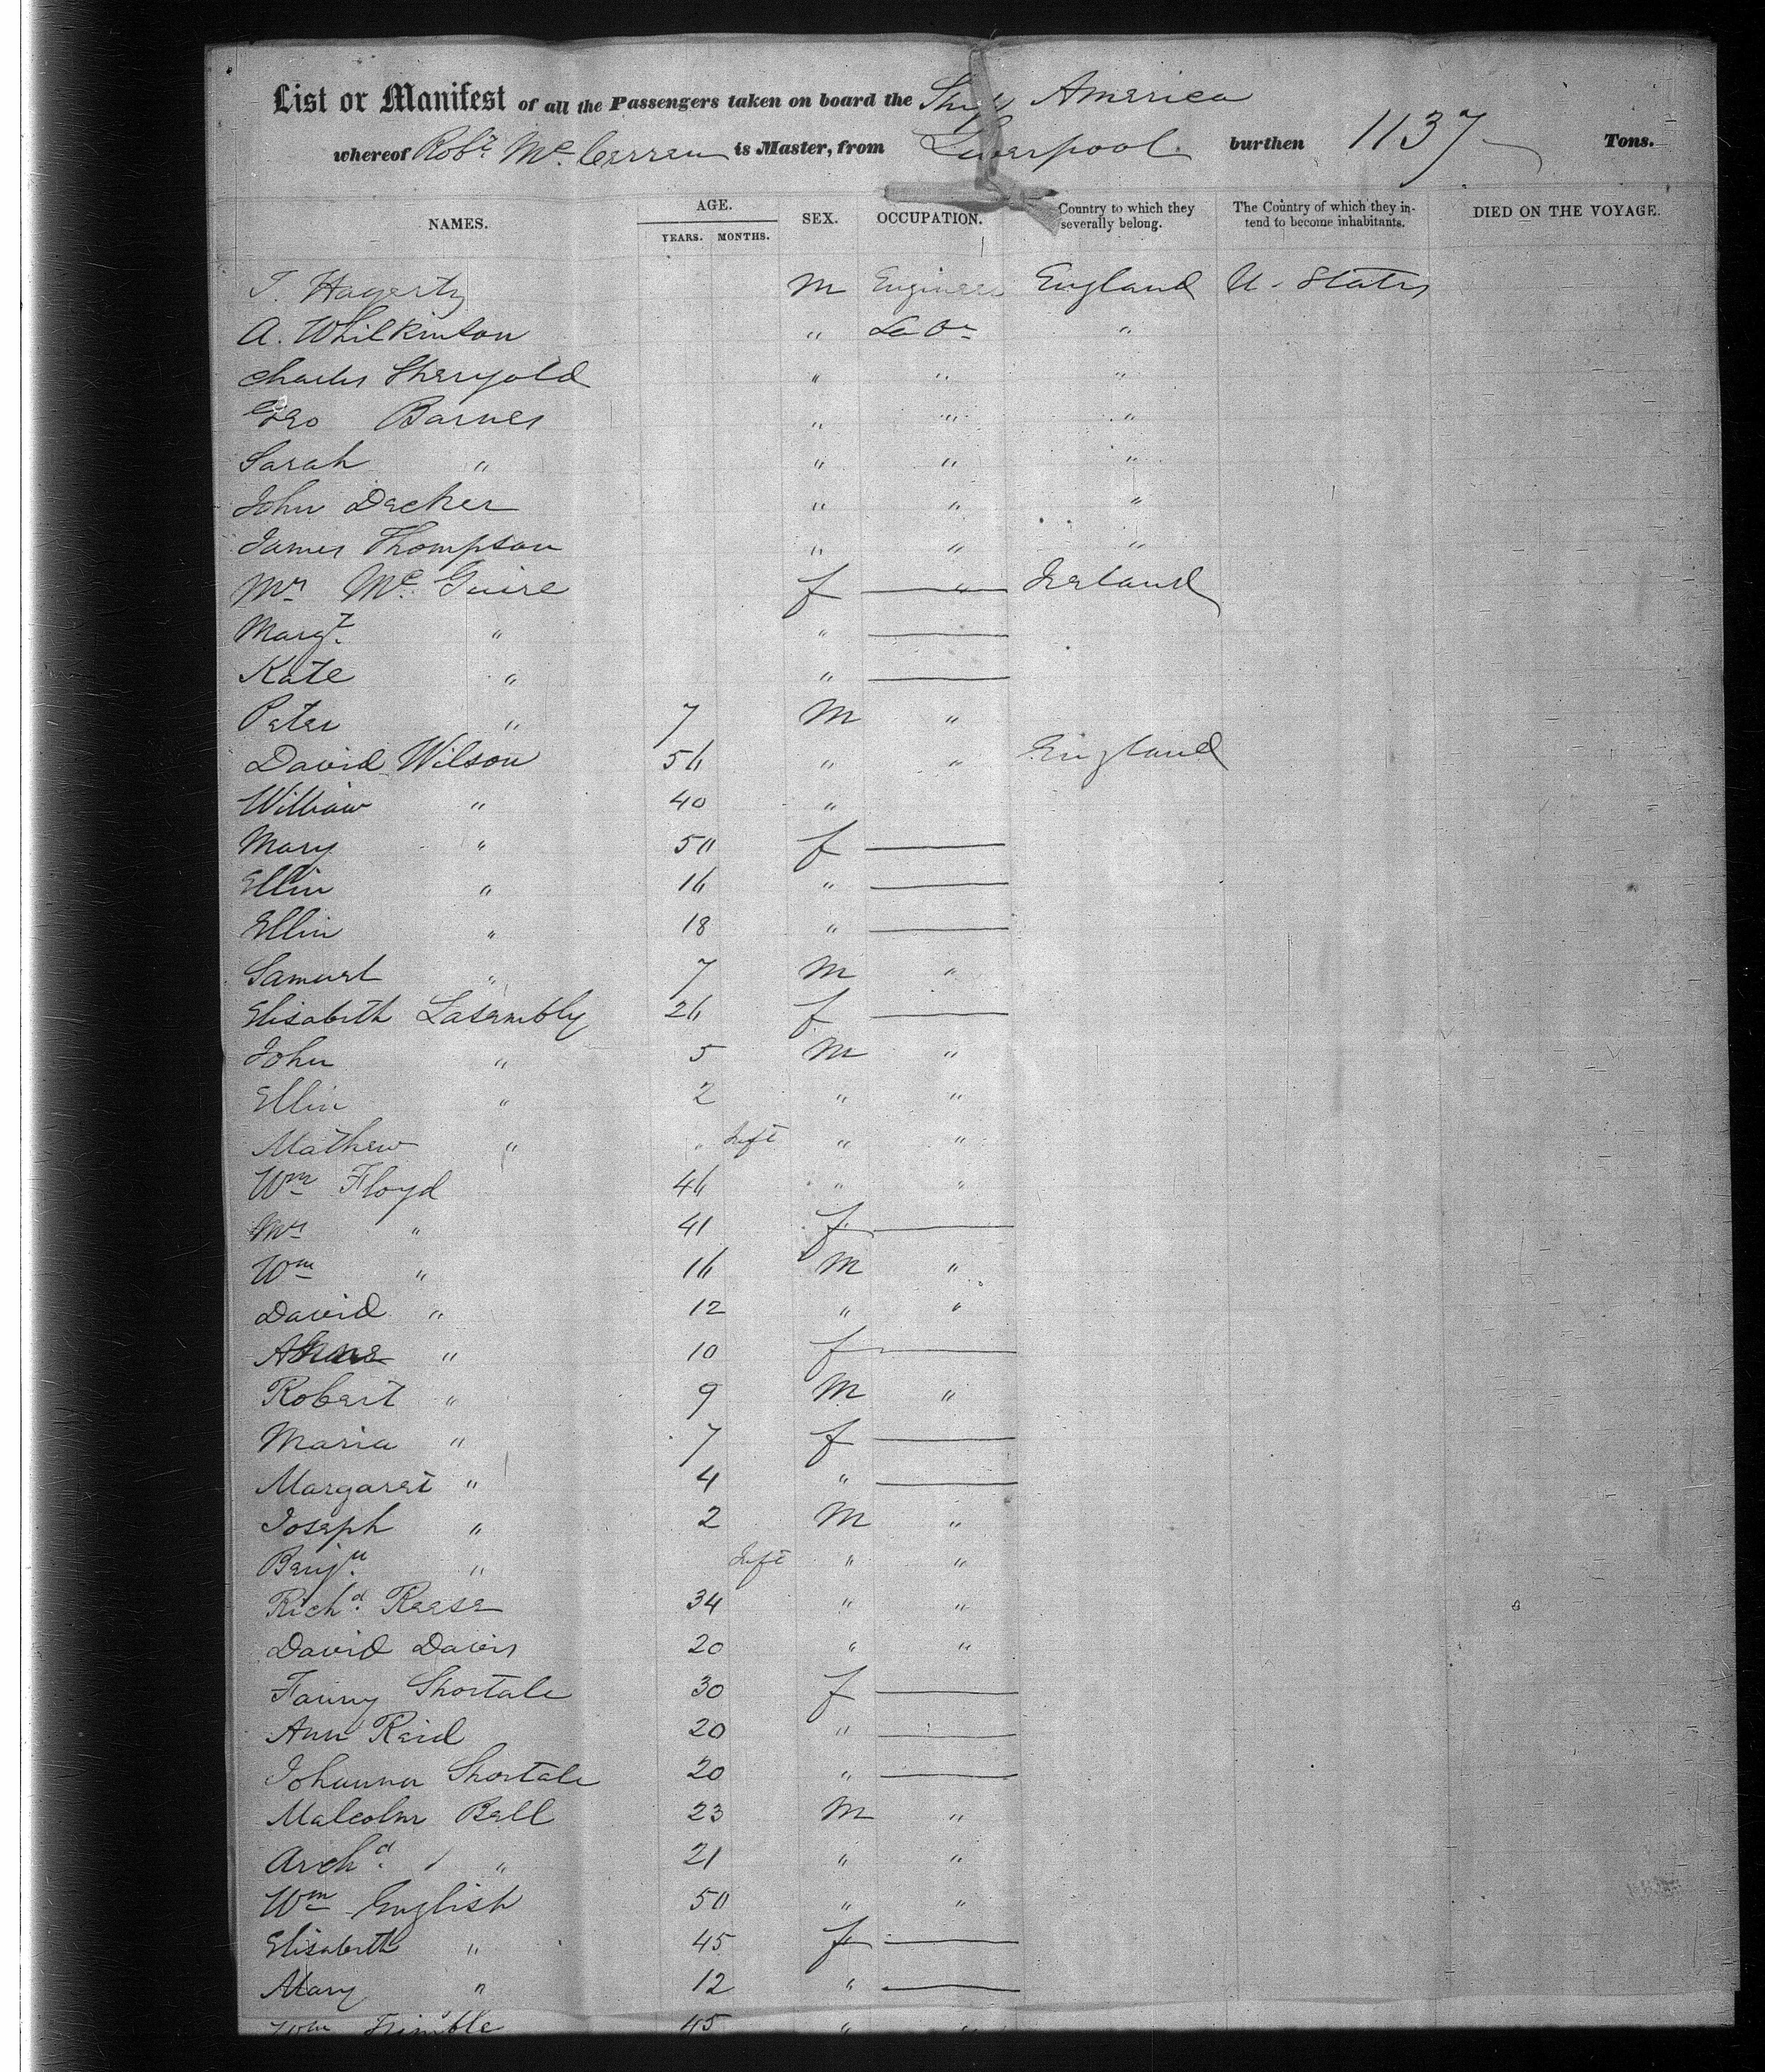 List or Manifest of all the Passengers taken on board the Ship America
whereof Robt Mc is Master, from Liverpool burthen 1137 Tons.
NAMES. AGE. YEARS. MONTHS. SEX. OCCUPATION. Country to which they severally belong. The Country of which they intend to become inhabitants. DIED ON THE VOYAGE.
T. Hagerty M Engineer England U. States
A. Whilkinson " Labr "
Charles Shergold " " "
Geo Barnes " " "
Sarah " " " "
John Decker " " "
James Thompson " " "
Mrs McGuire f " Ireland
Margt " "
Kate " "
Peter " 7 M "
David Wilson 56 " " England
William " 40 "
Mary " 50 f
Ellin " 16 "
Ellin " 18 "
Samuel " 7 M "
Elisabeth Lasembly 26 f
John " 5 M "
Ellin " 2 " "
Mathew " " Inft " "
Wm Floyd 46 " "
Mrs " 41 f
Wm " 16 M "
David " 12 " "
" 10 f
Robert " 9 M "
Maria " 7 f
Margaret " 4 "
Joseph " 2 M "
Benjn " Inft " "
Richd Reese 34 " "
David Davis 20 " "
Fanny Shortale 30 f
Ann Reid 20 "
Johanna Shortale 20 "
Malcolm Bell 23 M "
Archd " 21 " "
Wm English 50 " "
Elisabeth " 45 f
Mary " 12 "
Wm Trimble 45 " "